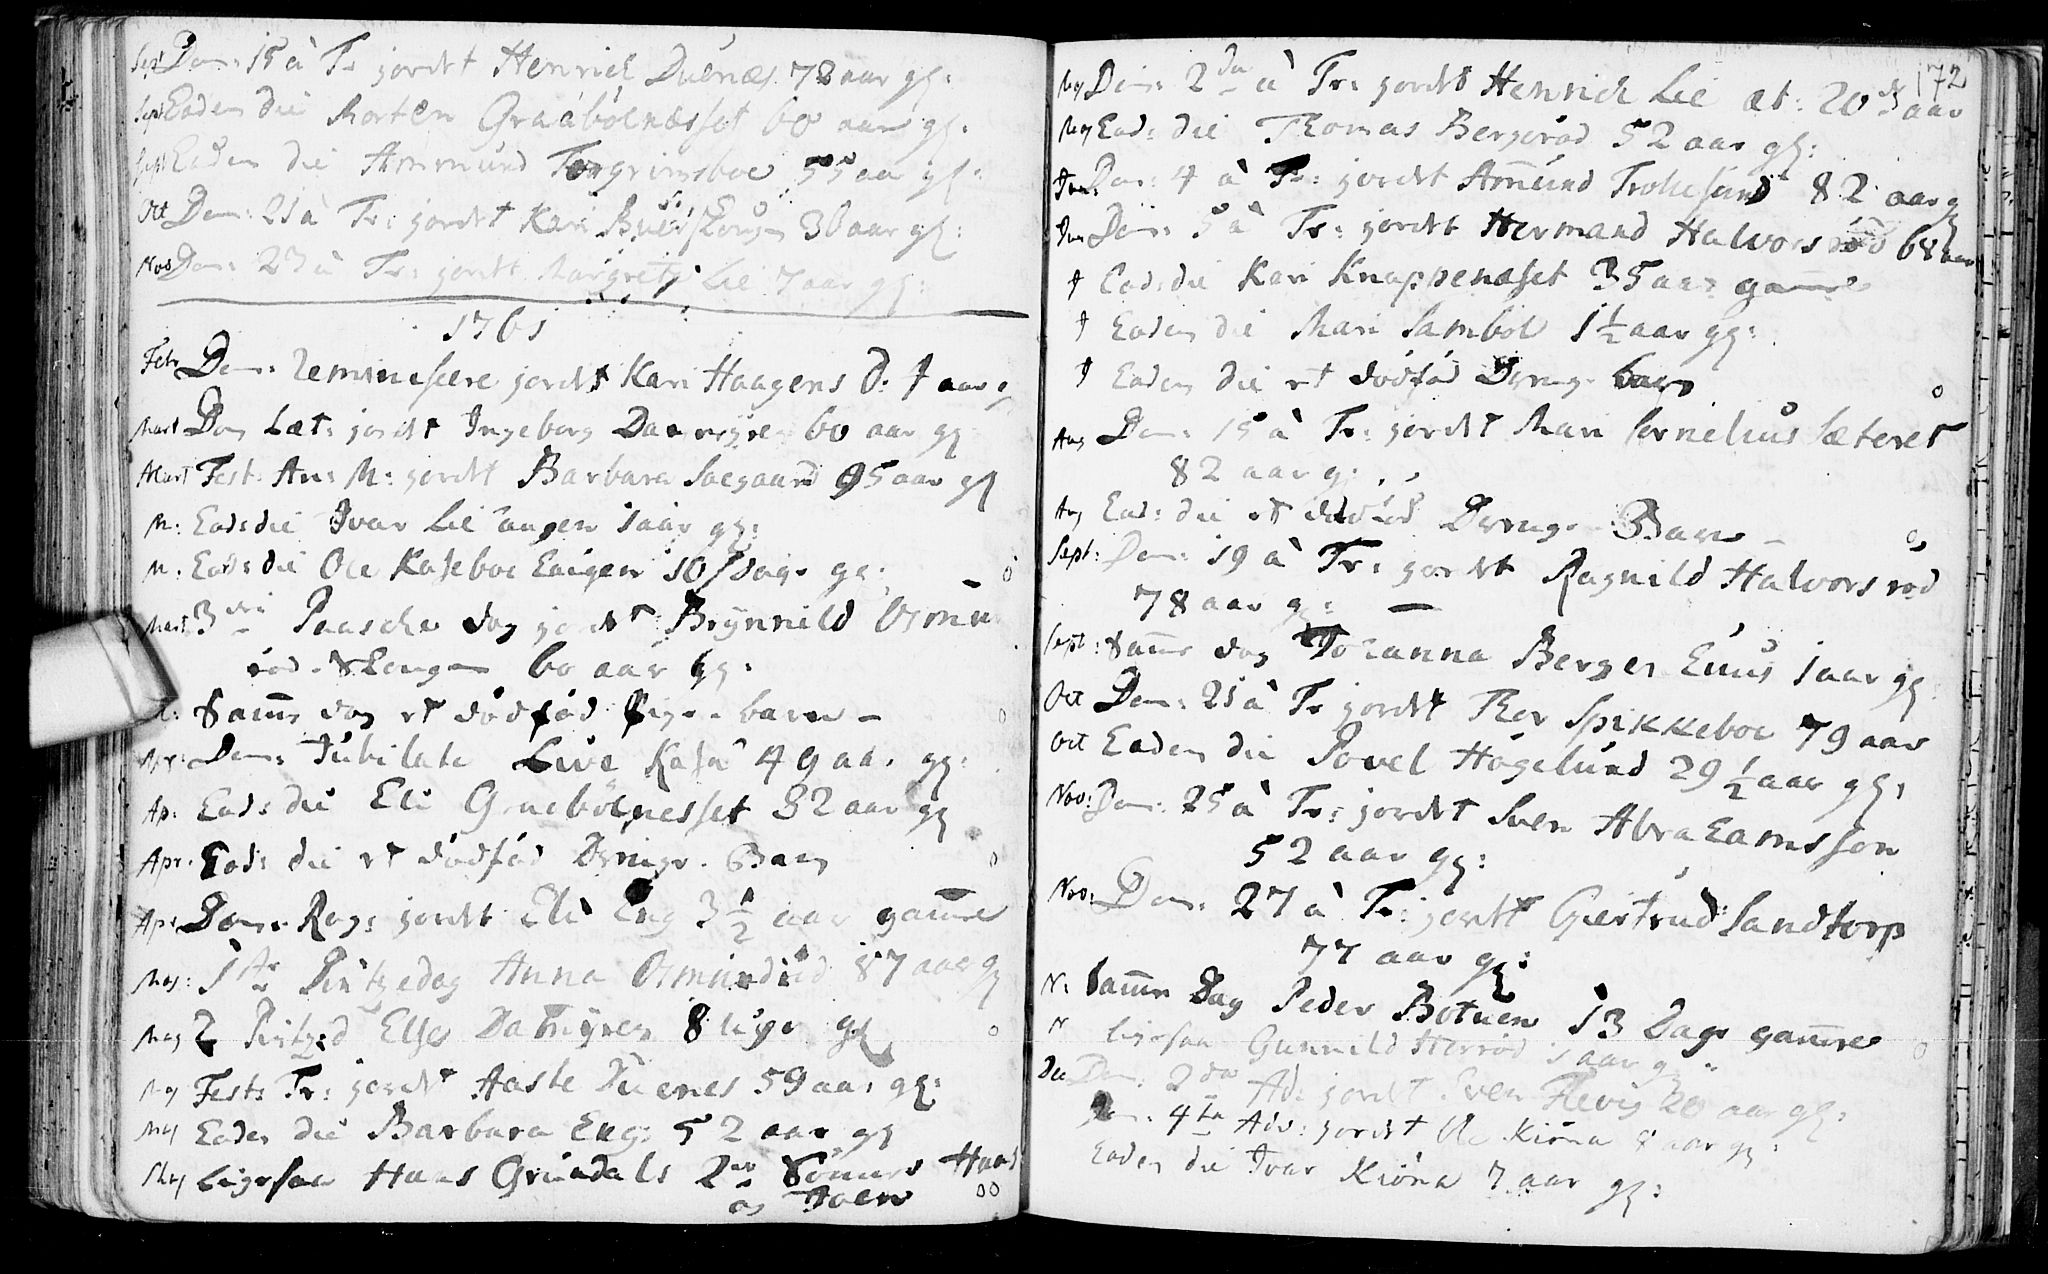 Sept Dom: 15 à Tr jordt Henrich Duenæs 78 aar gl:
Sept Eadem die Morten Graabölnæsset 60 aar gl.
Sept Eadem die Ammund Torgrimsboe 55 aar gl:
Oct Dom: 21 à Tr: jordt Kari 36 aar gl:
Nov Dom: 23 à Tr: jordt Margrete Lie 7 aar gl:
1761
Febr Dom: Reminiscere jordt Kari Haagens D: aar g
Mart Dom Læt: jordt Ingeborg 60 aar gl
Mart Fest. An: M: jordt Barbara Soegaard 95 aar gl
M: Ead: die Ivar Lie ungen 1 aar gl:
M. Ead: die Ole Kaseboe Eeigen 10 dage gl: - o
Mart 3die Paasche dag jordt Brynnild Osmu
röd 60 aar gl:
Samme dag et dödföd Pige barn - o
Apr: Dom: Jubilate Live Kasa 49 aar gl:
Ap: Ead: die Eli Graabölnesset 32 aar gl
Apr. Ead: die et dödföd Drenge Barn o
Apr Dom. Rog: jordt Eli Eng 3 1/2 aar gamme
Maj: 1ste Pintzedag Anna Osmundröd 87 aar gl
Maj 2 Pintzed Else Damyren 8 uger gl o
Mej Fest: Tr: jordt Aaste Duenes 59 aar gl:
Mej Eadem die Barbara Eng: 52 aar gl
Mej Ligesaa Hans Grundals 2de Sönner Hans
og Joen oo
172
Mej Dom: 2da à Tr: jordt Henrich Lie æt: 20 aar
Mej Ead: die Thomas Bergeröd 52 aar gl:
Jun: Dom: 4 à Tr: jordt Amund Trollesund 82 aar g
Jun Dom: 5 à Tr: jordt Hermand Halvorsröd 68 aar
J Ead: die Kari Knappenæset 35 aar gamme
J Eadem die Mari Samböl 1 1/2 aar gl:
J Eadem die et dödföd Drenge barn o
Aug Dom: 15 à Tr: jordt Mari Cornelius Sæteret
82 aar g:
Aug Ead: die et dödföd Drenge Barn - o
Sept: Dom: 19 à Tr: jordt Ragnild Halvorsröd
78 aar gl: -
Sept: Samme dag Johanna Berger Euus 1 aar gl
Oct Dom: 21 à Tr jordt Thor Spikkeboe 79 aar
Oct Eadem die Povel Högelund 29 1/2 aar gl:
Nov: Dom: 25 à Tr: jordt Sven Abrahamssön
52 aar gl:
Nov: Dom: 27 à Tr: jordt Giertrud Sandtorp
77 aar gl:
N. Samme Dag Peder Botnen 13 Dage gamme
N Ligesaa Gunnild Herröd 1 aar gl: o
Dec Dom: 2da Ad: jordt Even 20 aar gl:
Dom: 4ta Adv: jordt Ole Kiöna 8 aar gl:
Eadem die Ivar Kiöna 7 aar gl: